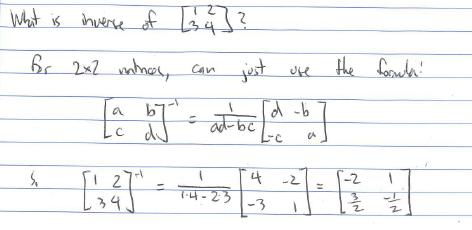 What is inverse of [1 2; 3 4]?
For 2x2 matrices, can just use the formula:
[a b; c d]⁻¹ = 1/(ad-bc) [d -b; -c a]
So [1 2; 3 4]⁻¹ = 1/(1·4 - 2·3) [4 -2; -3 1] = [-2 1; 3/2 -1/2]